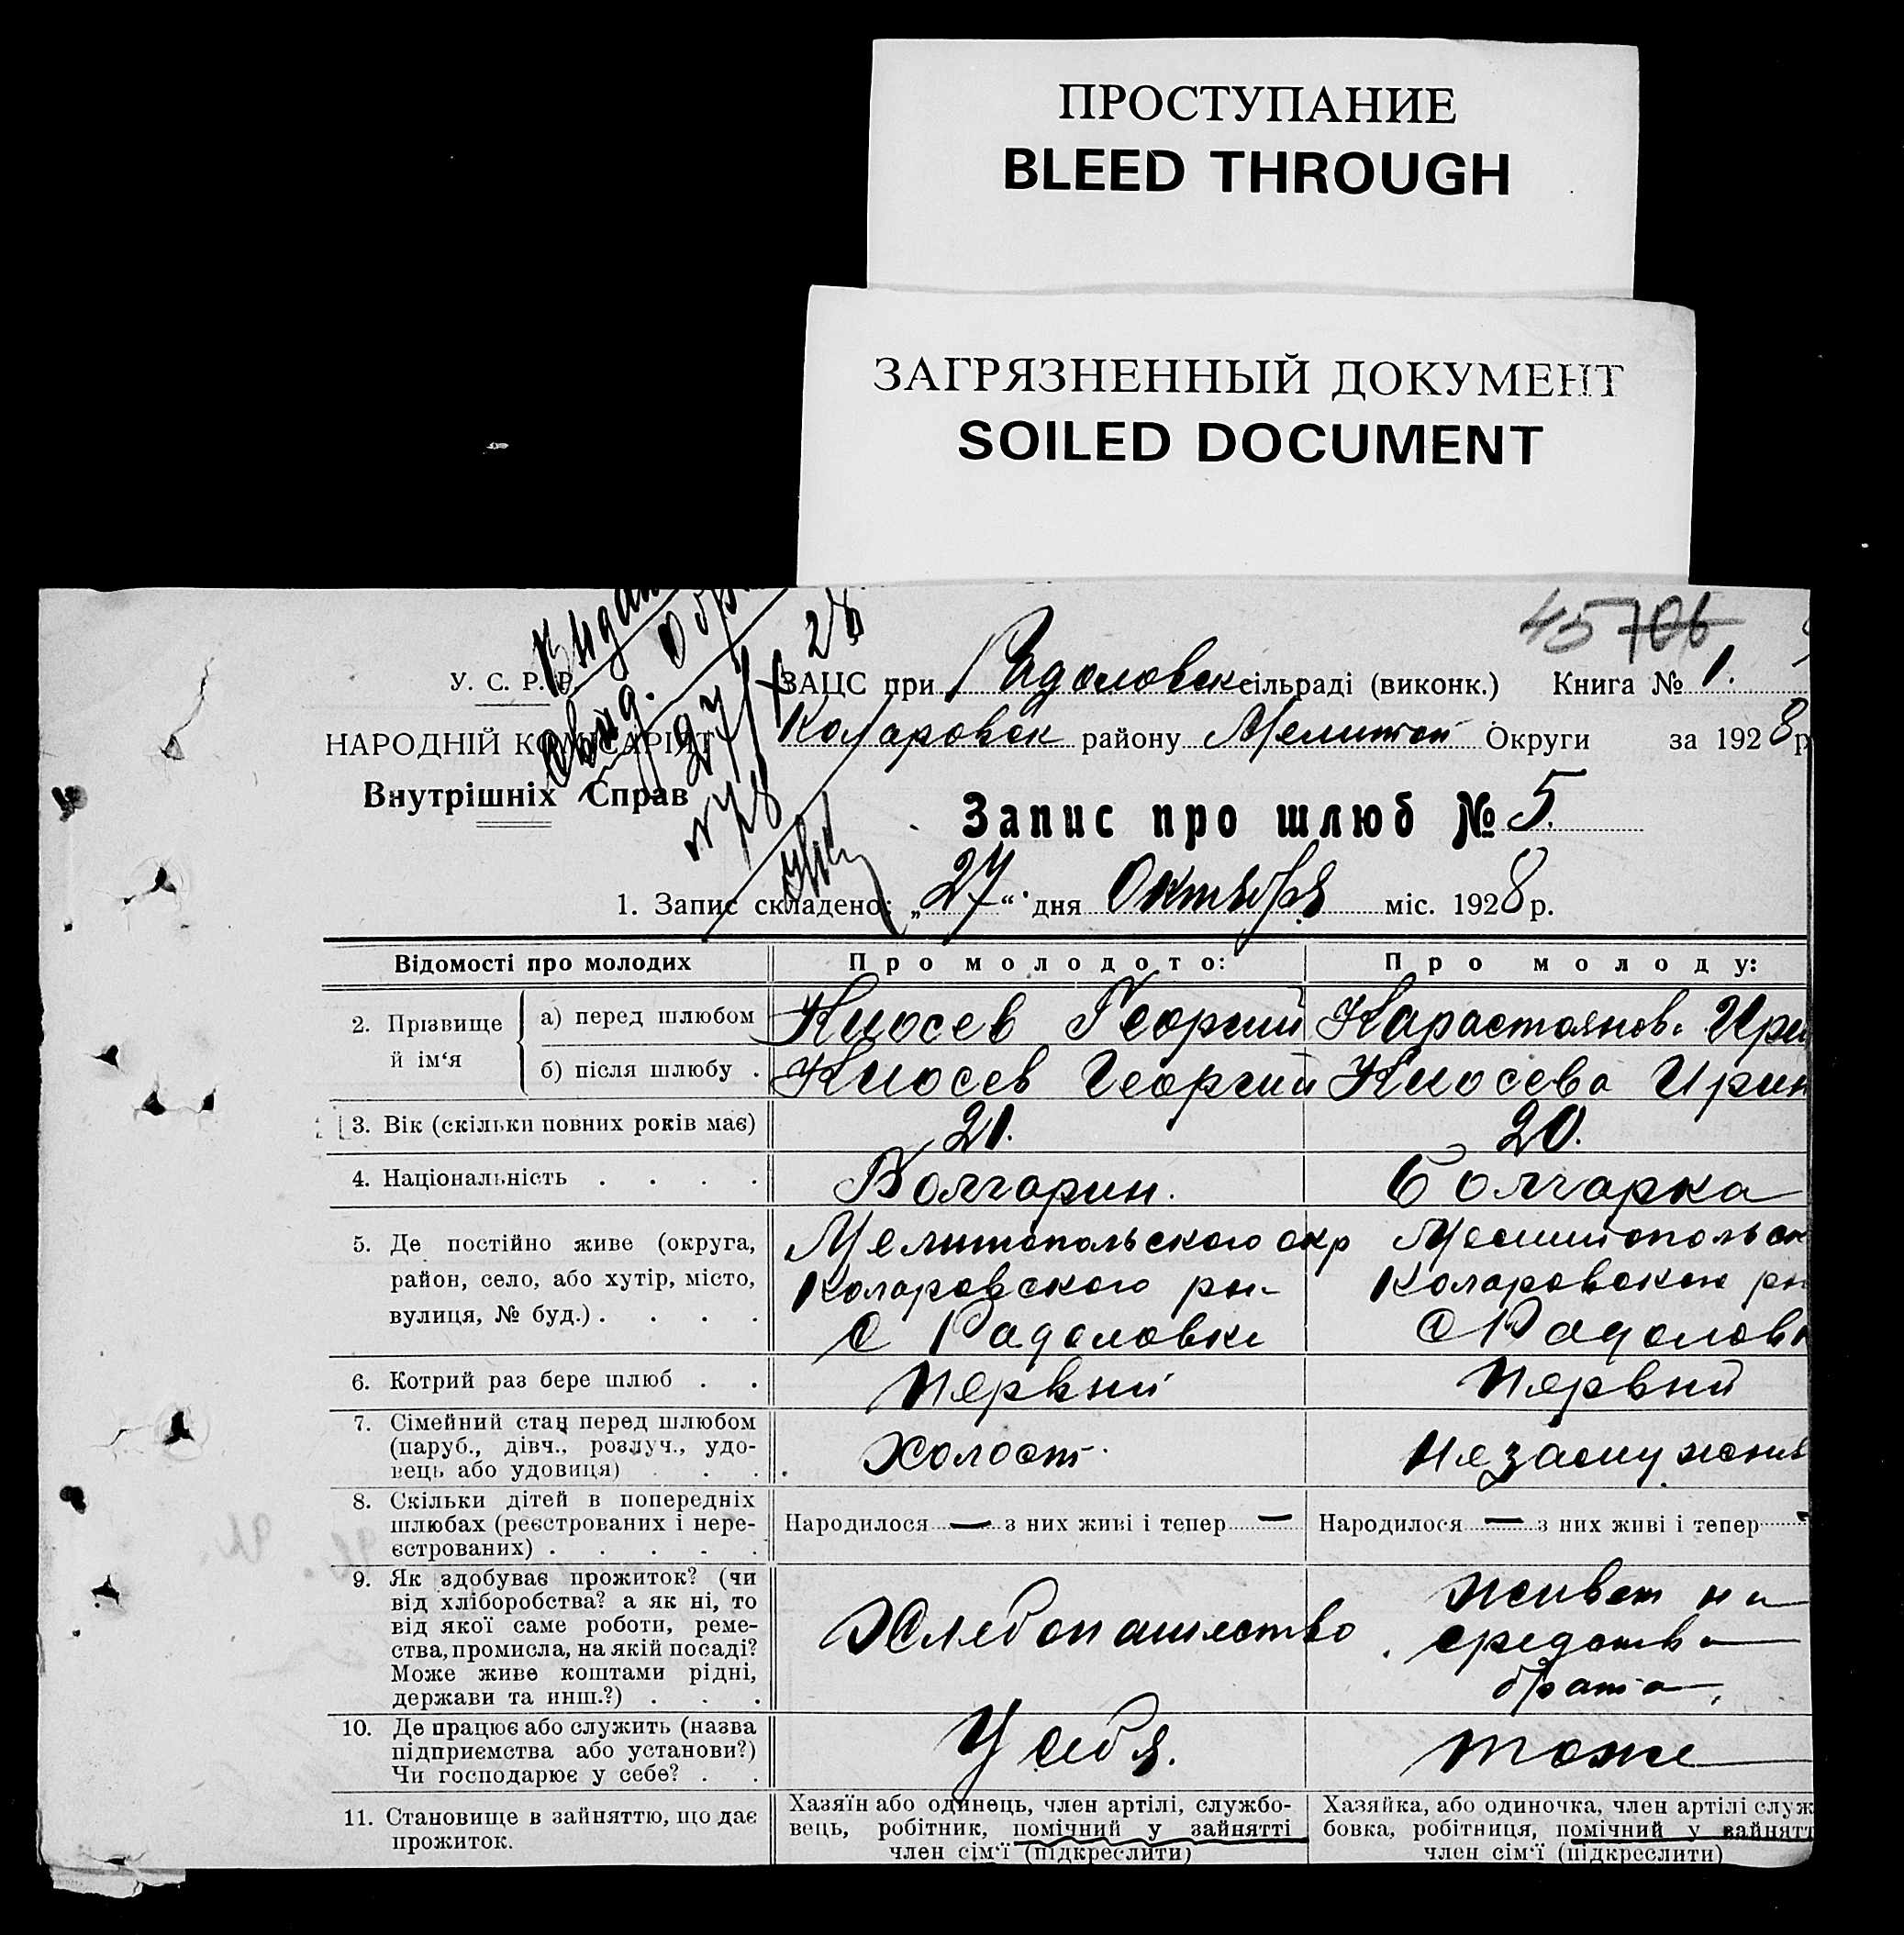 ПРОСТУПАНИЕ
BLEED THROUGH
ЗАГРЯЗНЕННЫЙ ДОКУМЕНТ
SOILED DOCUMENT
45 706
Видан
Обр
Свид.
27/X 28
№ 78
У. С. Р. Р.
НАРОДНІЙ КОМІСАРІЯТ
Внутрішніх Справ
ЗАЦС при Радоловск сільраді (виконк.) Книга № 1.
Коларовск району Мелитоп Округи за 1928 р
Запис про шлюб № 5.
1. Запис складено: „27“ дня Октября міс. 1928 р.
Відомості про молодих
Про молодого:
Про молоду:
2. Прізвище й ім‘я
а) перед шлюбом
Киосев Георгий
Карастоянов. Ири
б) після шлюбу .
Киосев Георгий
Киосева Ирин
3. Вік (скільки повних років має)
21.
20.
4. Національність . . . .
Болгарин.
Болгарка
5. Де постійно живе (округа,
район, село, або хутір, місто,
вулиця, № буд.) . . . .
Мелитопольского окр
Коларовского рн-
С Радоловке
Мелитопольск
Коларовского рн
С Радоловк
6. Котрий раз бере шлюб . .
Первый
Первый
7. Сімейний стан перед шлюбом
(паруб., дівч., розлуч., удо-
вець або удовиця) . . . .
Холост.
Незамужняя
8. Скільки дітей в попередніх
шлюбах (реєстрованих і нере-
єстрованих) . . . . .
Народилося — з них живі і тепер —
Народилося — з них живі і тепер -
9. Як здобуває прожиток? (чи
від хліборобства? а як ні, то
від якої саме роботи, реме-
ства, промисла, на якій посаді?
Може живе коштами рідні,
держави та инш.?) . . .
Хлебопашество
живет на
средства
брата,
10. Де працює або служить (назва
підприємства або установи?)
Чи господарює у себе? . .
У себя.
тоже
11. Становище в зайняттю, що дає
прожиток.
Хазяїн або одинець, член артілі, службо-
вець, робітник, помічний у зайнятті
член сім‘ї (підкреслити)
Хазяйка, або одиночка, член артілі служ
бовка, робітниця, помічний у зайнятт
член сім‘ї (підкреслити)